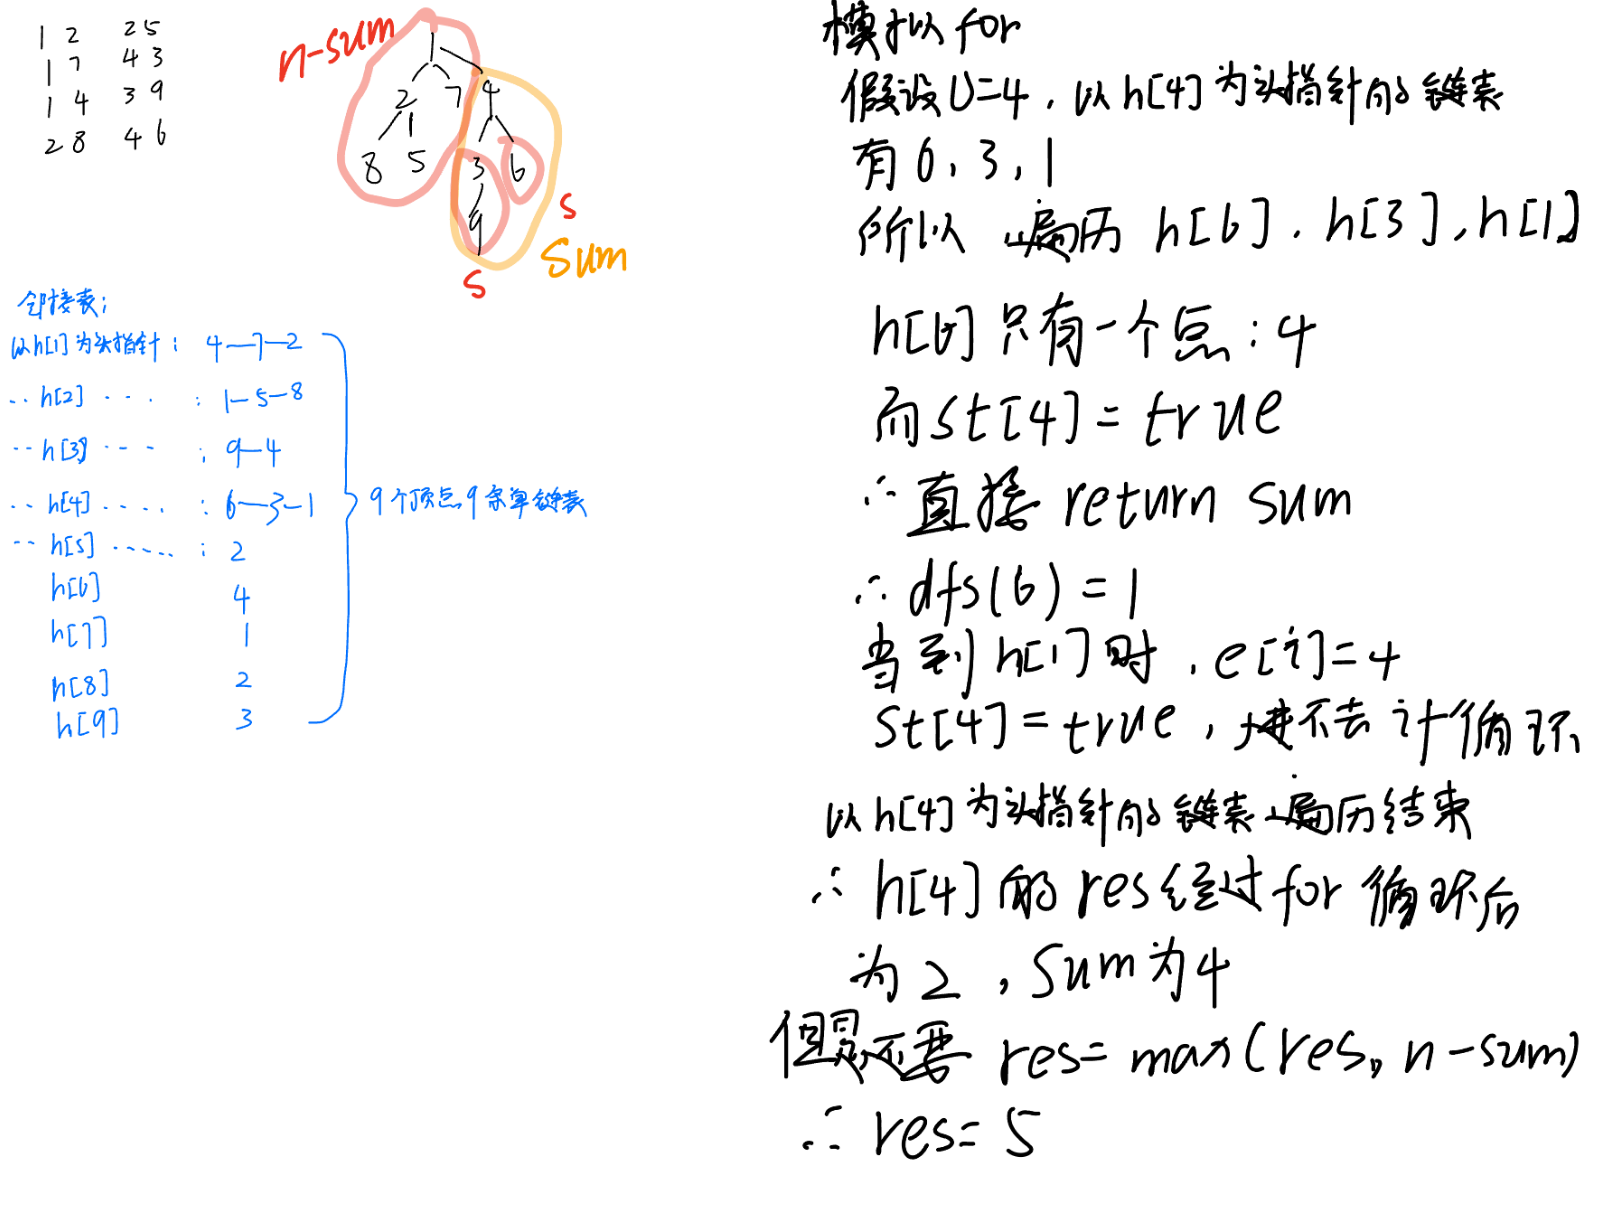 1 2 2 5
1 7 4 3
1 4 3 9
2 8 4 6
n-sum
1
2 7 4
8 5 3 6
9
s
sum
s
邻接表:
以h[1]为头指针: 4—7—2
.. h[2] ... : 1—5—8
.. h[3] ... : 9—4
.. h[4] .... : 6—3—1
.. h[5] ..... : 2
h[6] 4
h[7] 1
h[8] 2
h[9] 3
9个顶点,9条单链表
模拟for
假设U=4,以h[4]为头指针的链表
有6,3,1
所以 遍历 h[6],h[3],h[1]
h[6]只有一个点:4
而st[4]=true
∴直接 return sum
∴dfs(6)=1
当到h[1]时,e[i]=4
st[4]=true,进不去计循环
以h[4]为头指针的链表遍历结束
∴h[4]的res经过for循环后
为2,sum为4
但是还要 res=max(res,n-sum)
∴res=5